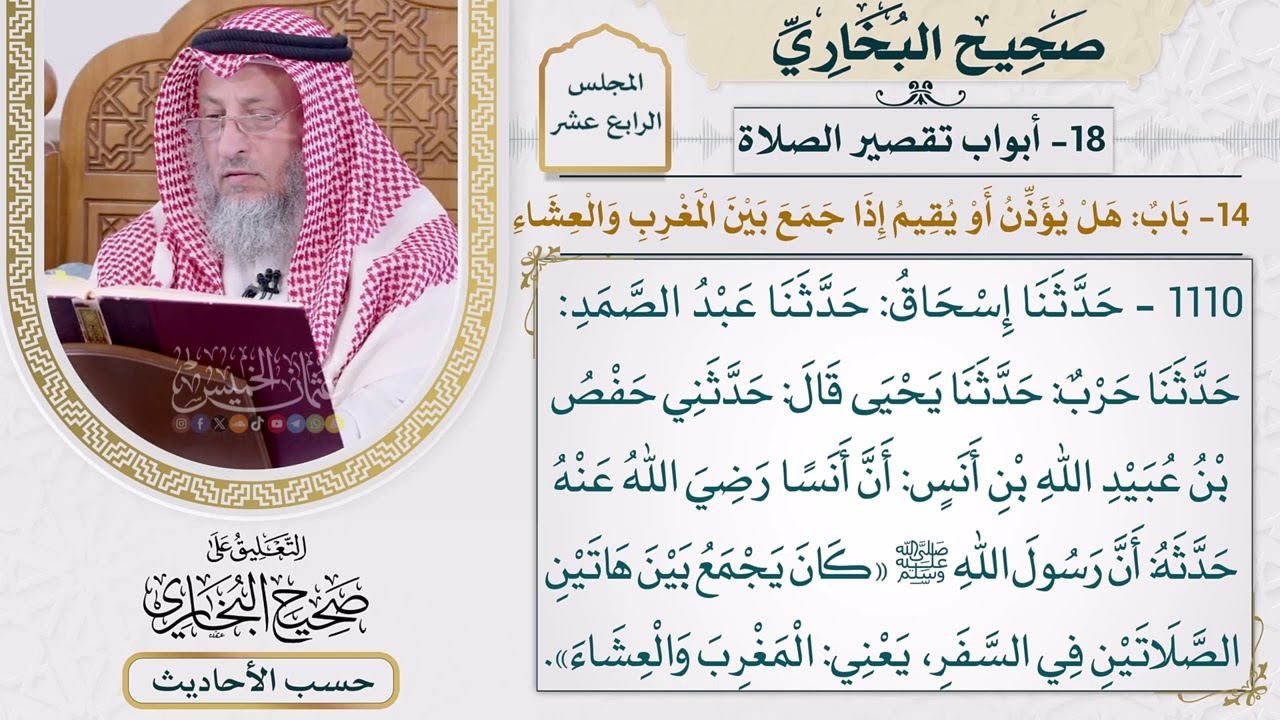 صَحِيح البُخَارِيِّ
المجلس
الرابع عشر
18- أبواب تقصير الصلاة
14- بَابٌ: هَلْ يُؤَذِّنُ أَوْ يُقِيمُ إِذَا جَمَعَ بَيْنَ الْمَغْرِبِ وَالْعِشَاءِ
1110 - حَدَّثَنَا إِسْحَاقُ: حَدَّثَنَا عَبْدُ الصَّمَدِ:
حَدَّثَنَا حَرْبٌ: حَدَّثَنَا يَحْيَى قَالَ: حَدَّثَنِي حَفْصُ
بْنُ عُبَيْدِ اللهِ بْنِ أَنَسٍ: أَنَّ أَنَسًا رَضِيَ اللهُ عَنْهُ
حَدَّثَهُ: أَنَّ رَسُولَ اللهِ ﷺ «كَانَ يَجْمَعُ بَيْنَ هَاتَيْنِ
الصَّلَاتَيْنِ فِي السَّفَرِ، يَعْنِي: الْمَغْرِبَ وَالْعِشَاءَ».
عثمان الخميس
التَّعْلِيقُ عَلَى
صَحِيحُ البُخَارِي
حسب الأحاديث